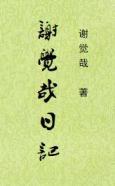 謝覺哉日記
谢觉哉 著